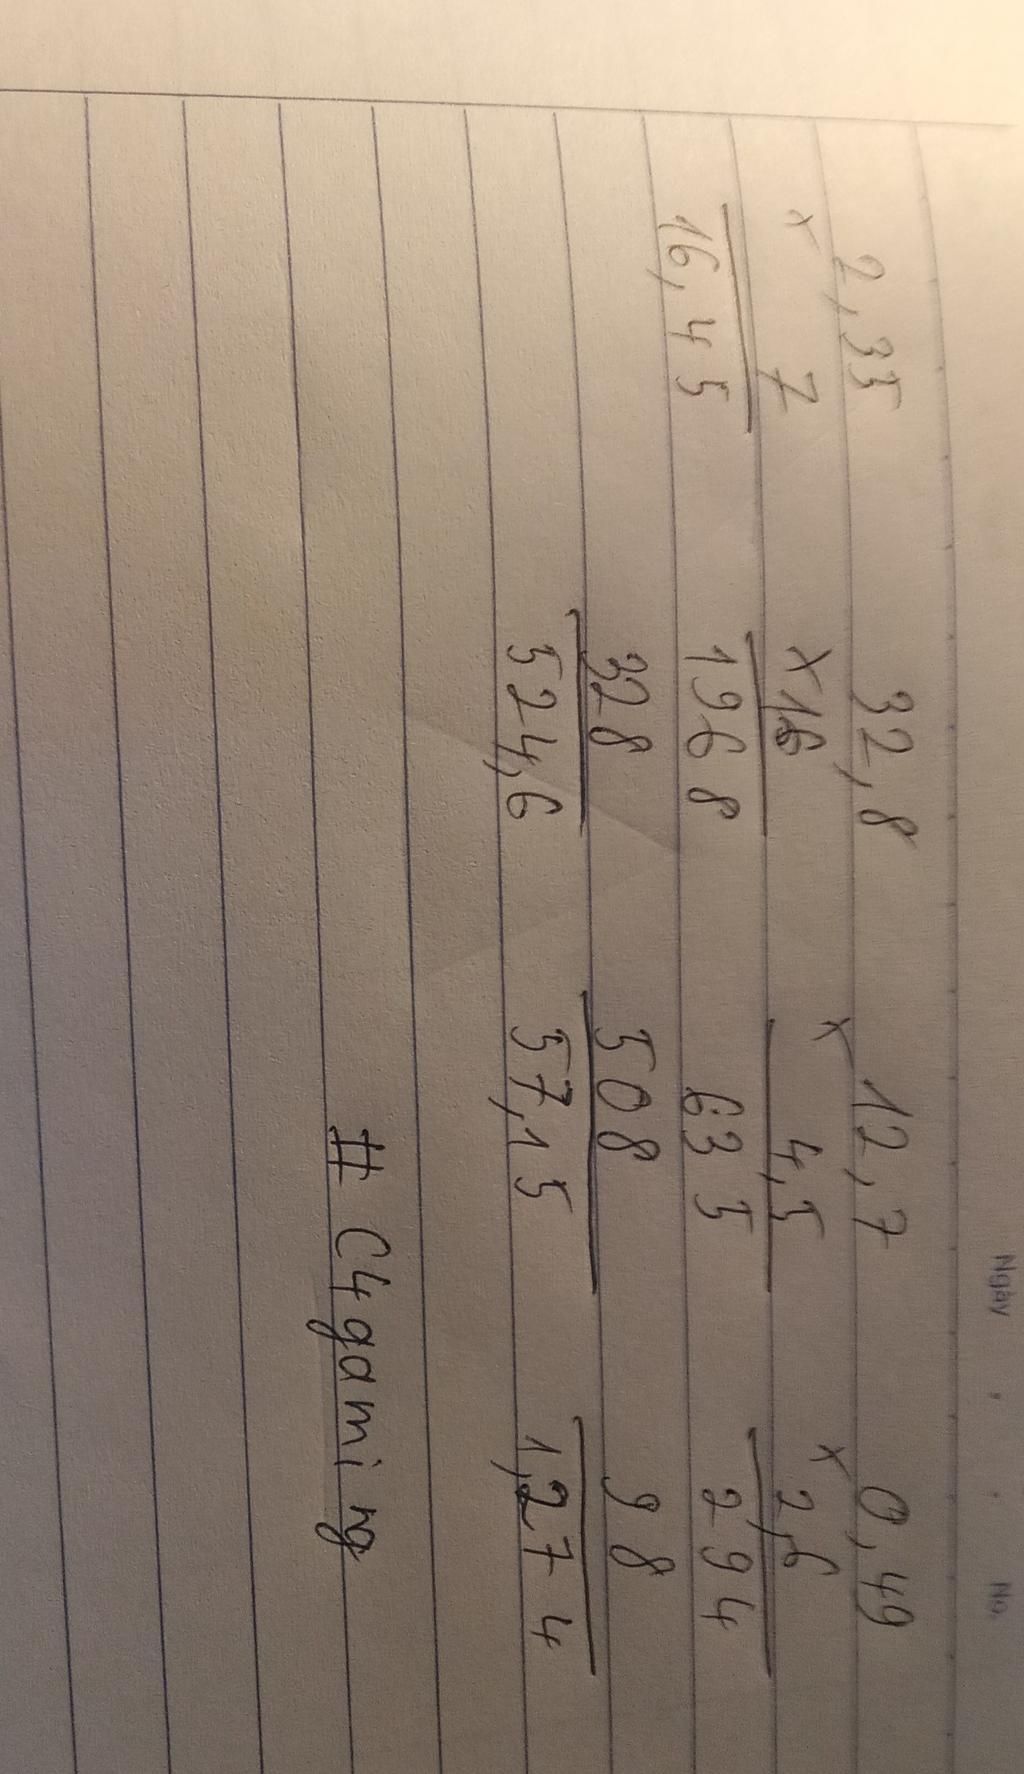 Ngày . . No.
2,35 32,8 12,7 0,49
x 7 x 16 x 4,5 x 2,6
16,45 1968 635 294
328 508 98
524,6 57,15 1,274
# C4gaming